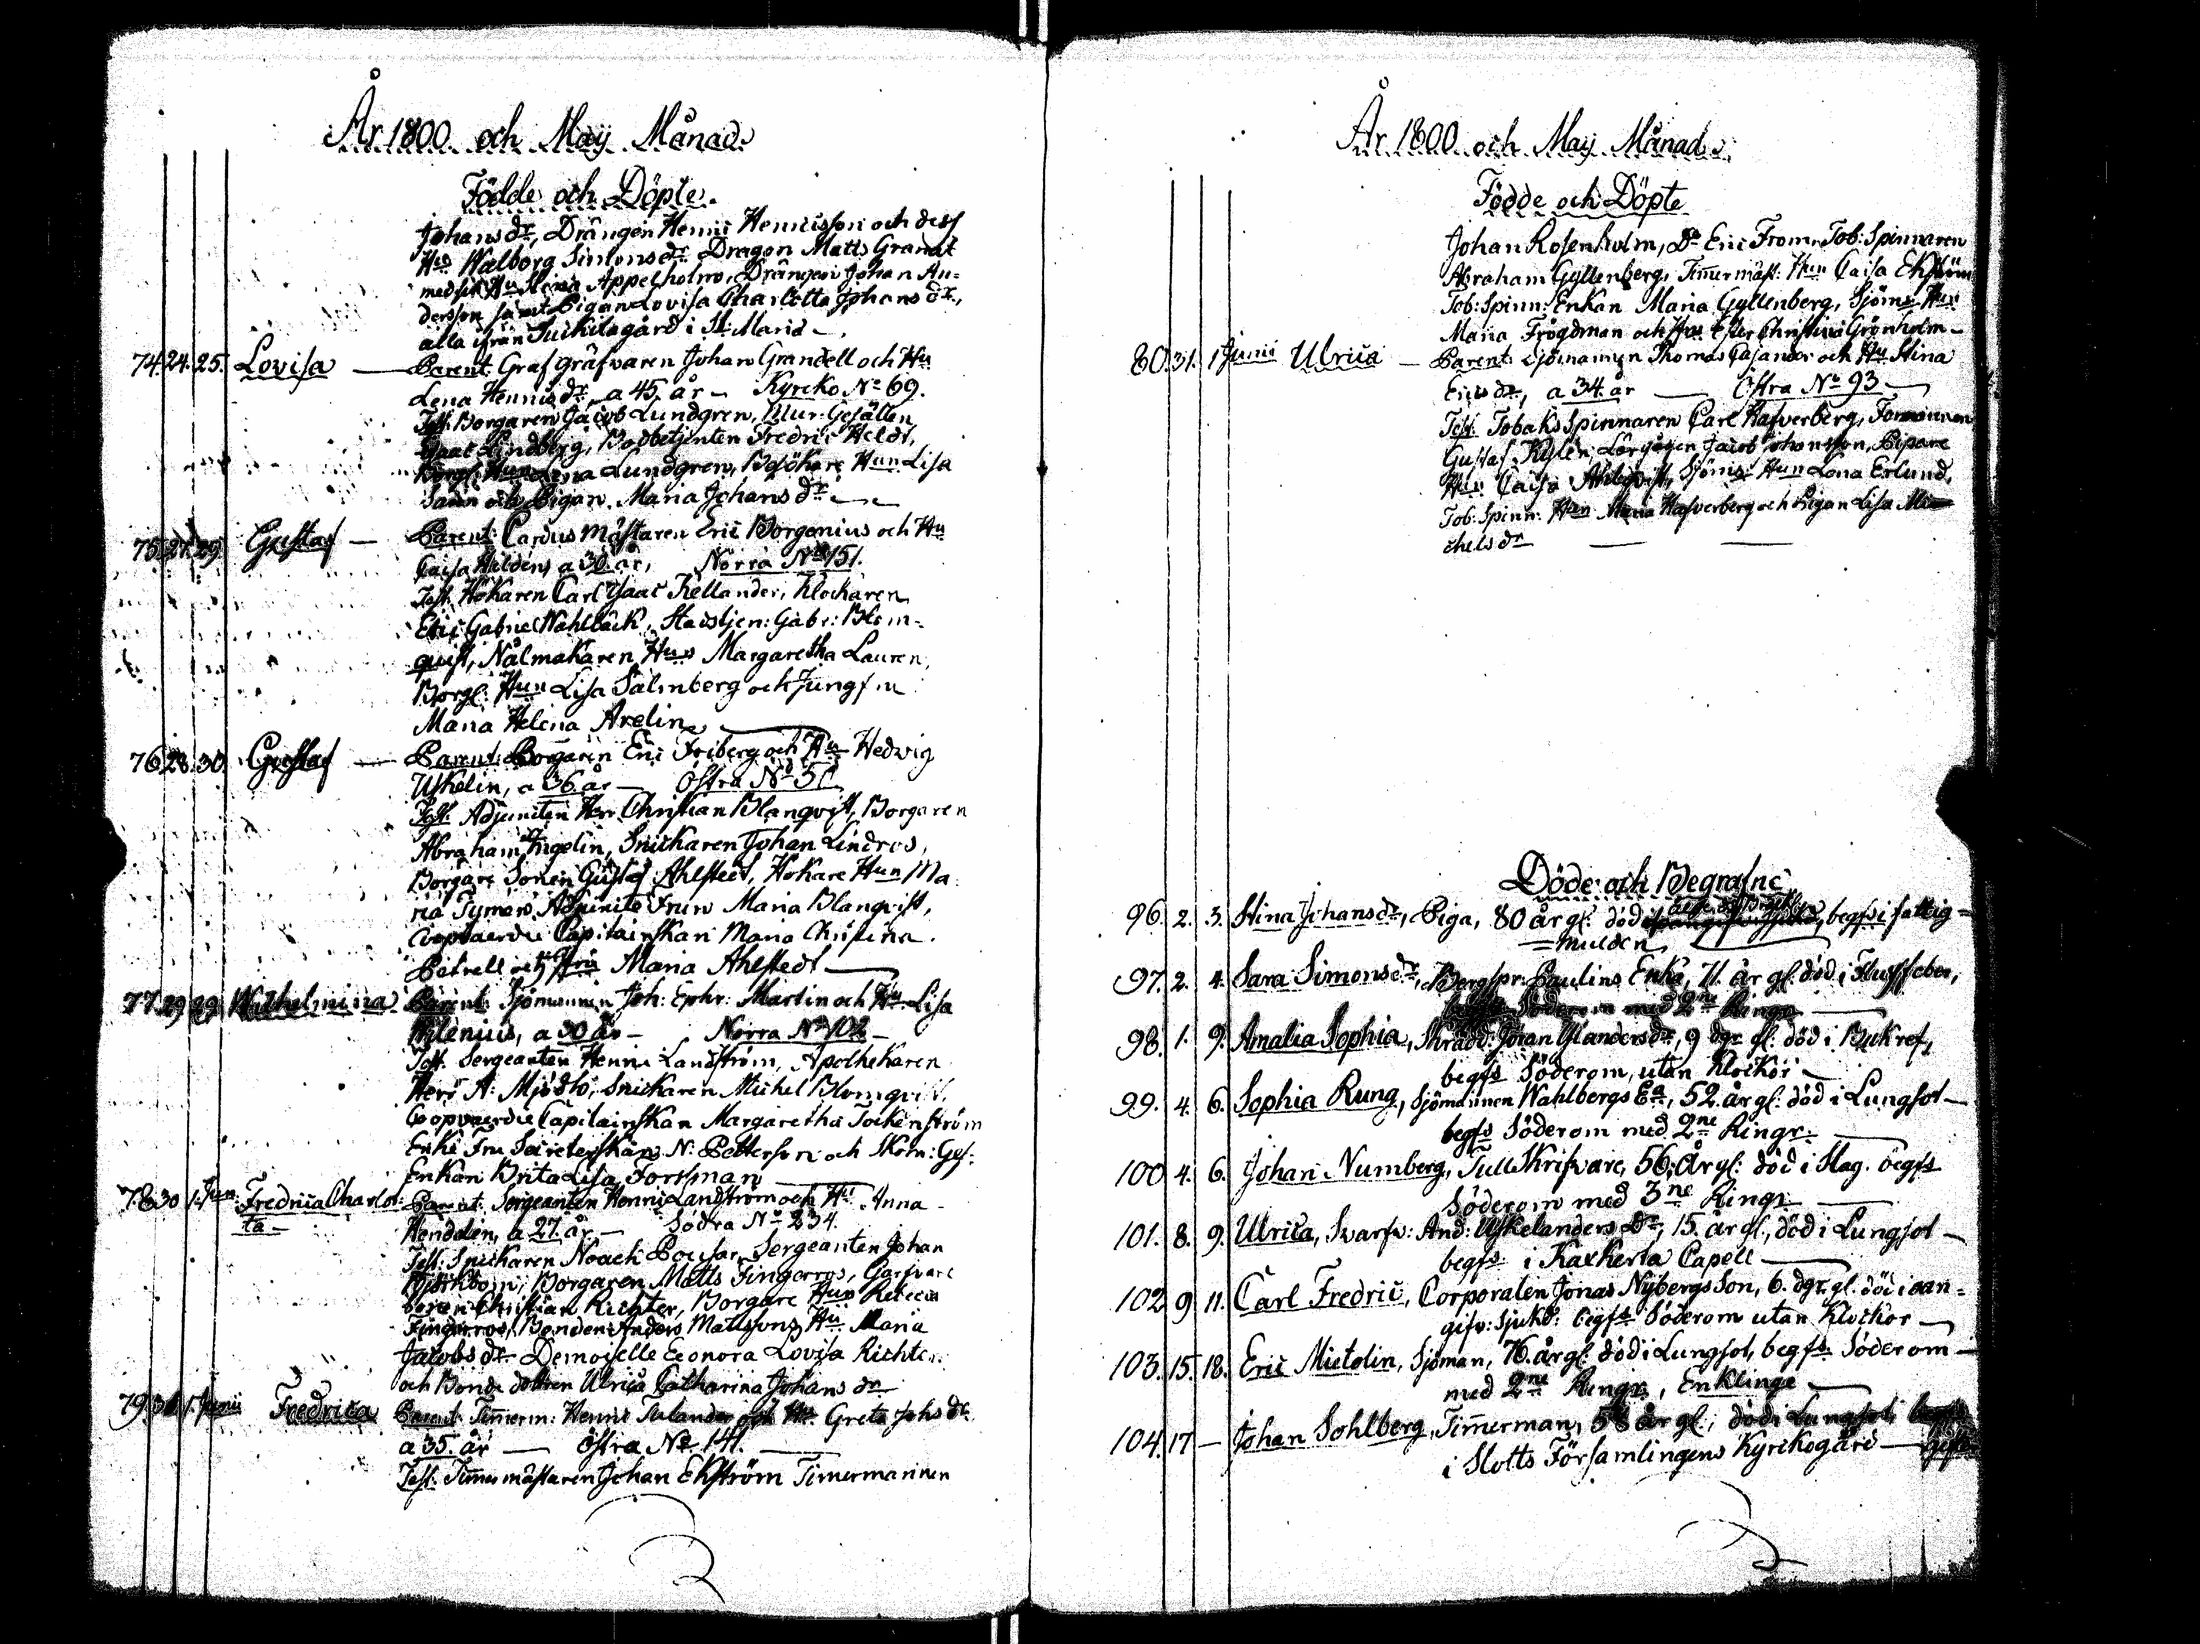 År 1800 och Maÿ Månad.
Födde och Döpte.
Johansdr, Drängen Henric Henricsson och dess
Hu Walborg Simonsdr Dragon Matts Granat
med sin Hu Maria Appelholm, Drängen Johan An=
dersson samt Pigan Lovisa Charlotta Johansdr,
alla ifrån Tuickilagård i St Marie
74. 24. 25. Lovisa — Parent: Johan Grandell och Hu
Lena Henricsdr, a 45 år — Kyrcko No 69.
Test. Borgaren Jacob Lundgren, Mur: Gesällen
Isaac Lindberg, Bodbetjenten Fredric Heldt,
Borgl: Hun Lena Lundgren, Besökare Hun Lisa
och Pigan Maria Johansdr
75. 27. 29. Gustaf — Parent: Cardus mästaren Eric Borgenius och Hu
Caisa, a 30 år, Norra No 151.
Test. Hökaren Carl Isaac Kellander, Klockaren
Eric Gabriel Wahlbäck, Gabr: Blom=
quist, Nålmakaren Hun Margaretha Lauren,
Borgl: Hun Lisa Salmberg och Jungfru
Maria Helena Arelin
76. 28. 30. Gustaf — Parent: Borgaren Eric Friberg och Hu Hedwig
Uskelin, a 36 år — Östra No 51
Test. Adjuncten Herr Christian Blanqvist, Borgaren
Abraham Ingelin, Snickaren Johan Lindros,
Borgare Sonen Gustaf Ahlstedt, Hökare Hun Ma
ria Adjuncts Frun Maria Blanqvist,
Capitainskan Maria Christina
Petrell och Fru Maria Ahlstedt
77. 29 29. Wilhelmina Parent: Sjömannen Joh: Ephr: Martin och Hu Lisa
a 30 år — Norra No 102 —
Test. Sergeanten Henric Landström, Apothekaren
Herr A: Mjödh, Snickaren Michel Blomqvist,
Coopvaerdie Capitainskan Margaretha Tockenström
Enke Fru N: Petterson och Skom: Ges:
Enkan Brita Lisa Forssman
78. 30 1. Jun: Fredrica Charlot: Parent: Sergeanten Henric Landström och Hu Anna
ta — a 27 år — Södra No 234.
Test: Snickaren Noach Pousar, Sergeanten Johan
Björkbom, Borgaren Matts Fingerros, Garfvare
Christian Richter, Borgare Hun Rebecca
Fingerros, Bonden Anders Mattssons Hu Maria
Jacobsdr Demoiselle Eeonora Lovisa Richter
och Bonde dottren Ulrica Catharina Johansdr
79. 30 1. Junii Fredrica Parent: Timmerm: Henric Tulander och Hu Greta Johsdr
a 35. år — Östra No 141.
Test. Timmermästaren Johan Ekström Timmermannen
År 1800 och Maÿ Månad.
Födde och Döpte
Johan Rosenholm, Do Eric From, Tob: Spinnaren
Abraham Gyllenberg, Timmermäst: Hun Caisa Ekström
Tob: Spinn: Enkan Maria Gyllenberg, Sjöms Hun
Maria Frögdman och Christina Grönholm —
80. 31. 1 Junii Ulrica — Parent: Sjömannen Thomas Cajander och Hu Stina
Ericsdr, a 34. år — Östra No 93
Test. Tobaks Spinnaren Carl Hafverberg,
Gustaf Kylen, Lärgåssen Jacob Johansson, Pipare
Hun Caisa Ahlqvist, Sjöms: Hun Lena Erlund,
Tob: Spinn: Hun Maria Hafverberg och Pigan Lisa Mi
chelsdr
Döde och Begrafne
96. 2. 3. Stina Johansdr, Piga, 80 år gl: död begfs i fattig=
=mulden
97. 2. 4. Sara Simonsdr, Bergspr: Paulins Enka, 71. år gl. död i
Söderom med 2ne Ringr
98. 1. 9. Amalia Sophia, Skradd: Johan Glandersdr, 9 dgr gl. död i Bukref,
begfs Söderom, utan Klockor
99. 4. 6. Sophia Rung, Sjömannen Wahlbergs Ea, 52. år gl: död i Lungsot —
begfs Söderom med 2ne Ringr.
100 4. 6. Johan Numberg, Tull Skrifvare, 56. år gl: död i Slag. begfs
Söderom med 3ne Ringr.
101. 8. 9. Ulrica, Svarfv: And: Uskelanders Dr, 15. år gl., död i Lungsot —
begfs i Kaxkerta Capell
102 9 11. Carl Fredric, Corporalen Jonas Nybergs Son, 6. dgr. gl. död i oan=
gifv: Sjukd: begfs Söderom utan Klockor
103. 15. 18. Eric Mietolin, Sjöman, 76. år gl: död i Lungsot, begfs Söderom —
med 2ne Ringr, Enklinge
104. 17 — Johan Sohlberg, Timmerman, 58 år gl., död i Lungsot
i Slotts Församlingens Kyrckogård — gift